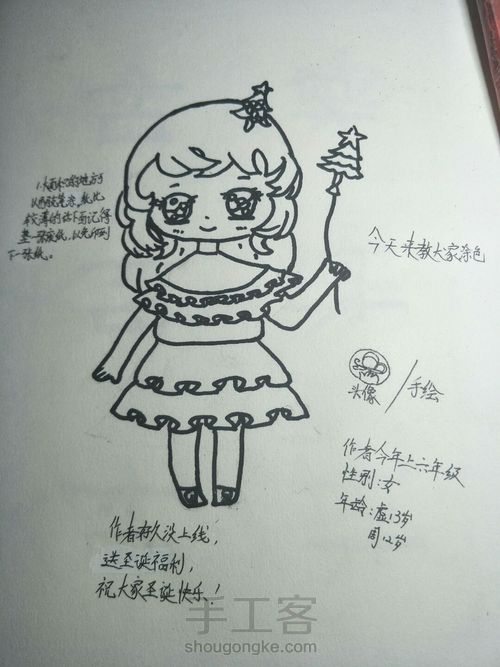 以用软笔涂,纸比
较薄的话下面记得
垫一张废纸,以免印到
下一张纸。
今天来教大家涂色
头像
/手绘
作者今年上六年级
性别:女
年龄:虚13岁
周12岁
作者好久没上线,
送圣诞福利,
祝大家圣诞快乐!
手工客
shougongke.com